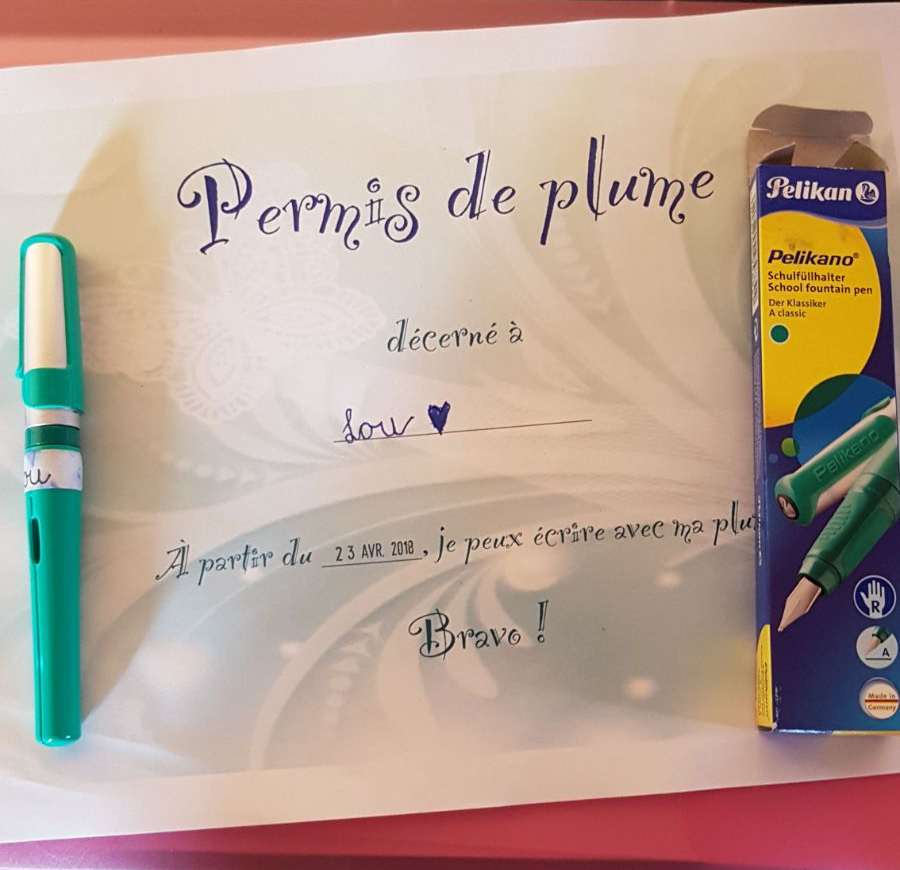 Permis de plume
décerné à
Lou ♥
À partir du 23 AVR. 2018, je peux écrire avec ma plu
Bravo !
ou
Pelikan
Pelikano®
Schulfüllhalter
School fountain pen
Der Klassiker
A classic
Pelikano
R
A
Made in
Germany